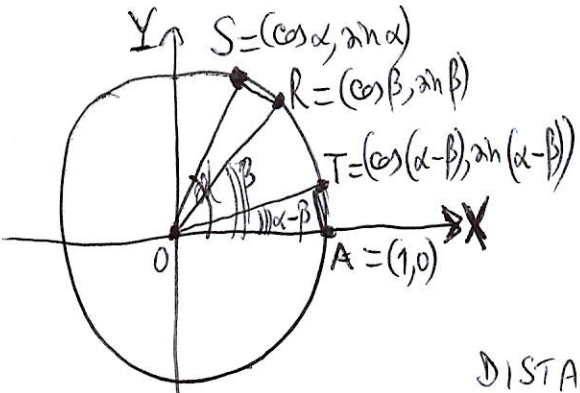 Y
S=(cosα, sinα)
R=(cosβ, sinβ)
T=(cos(α-β), sin(α-β))
α
β
α-β
O
A=(1,0)
X
DISTA